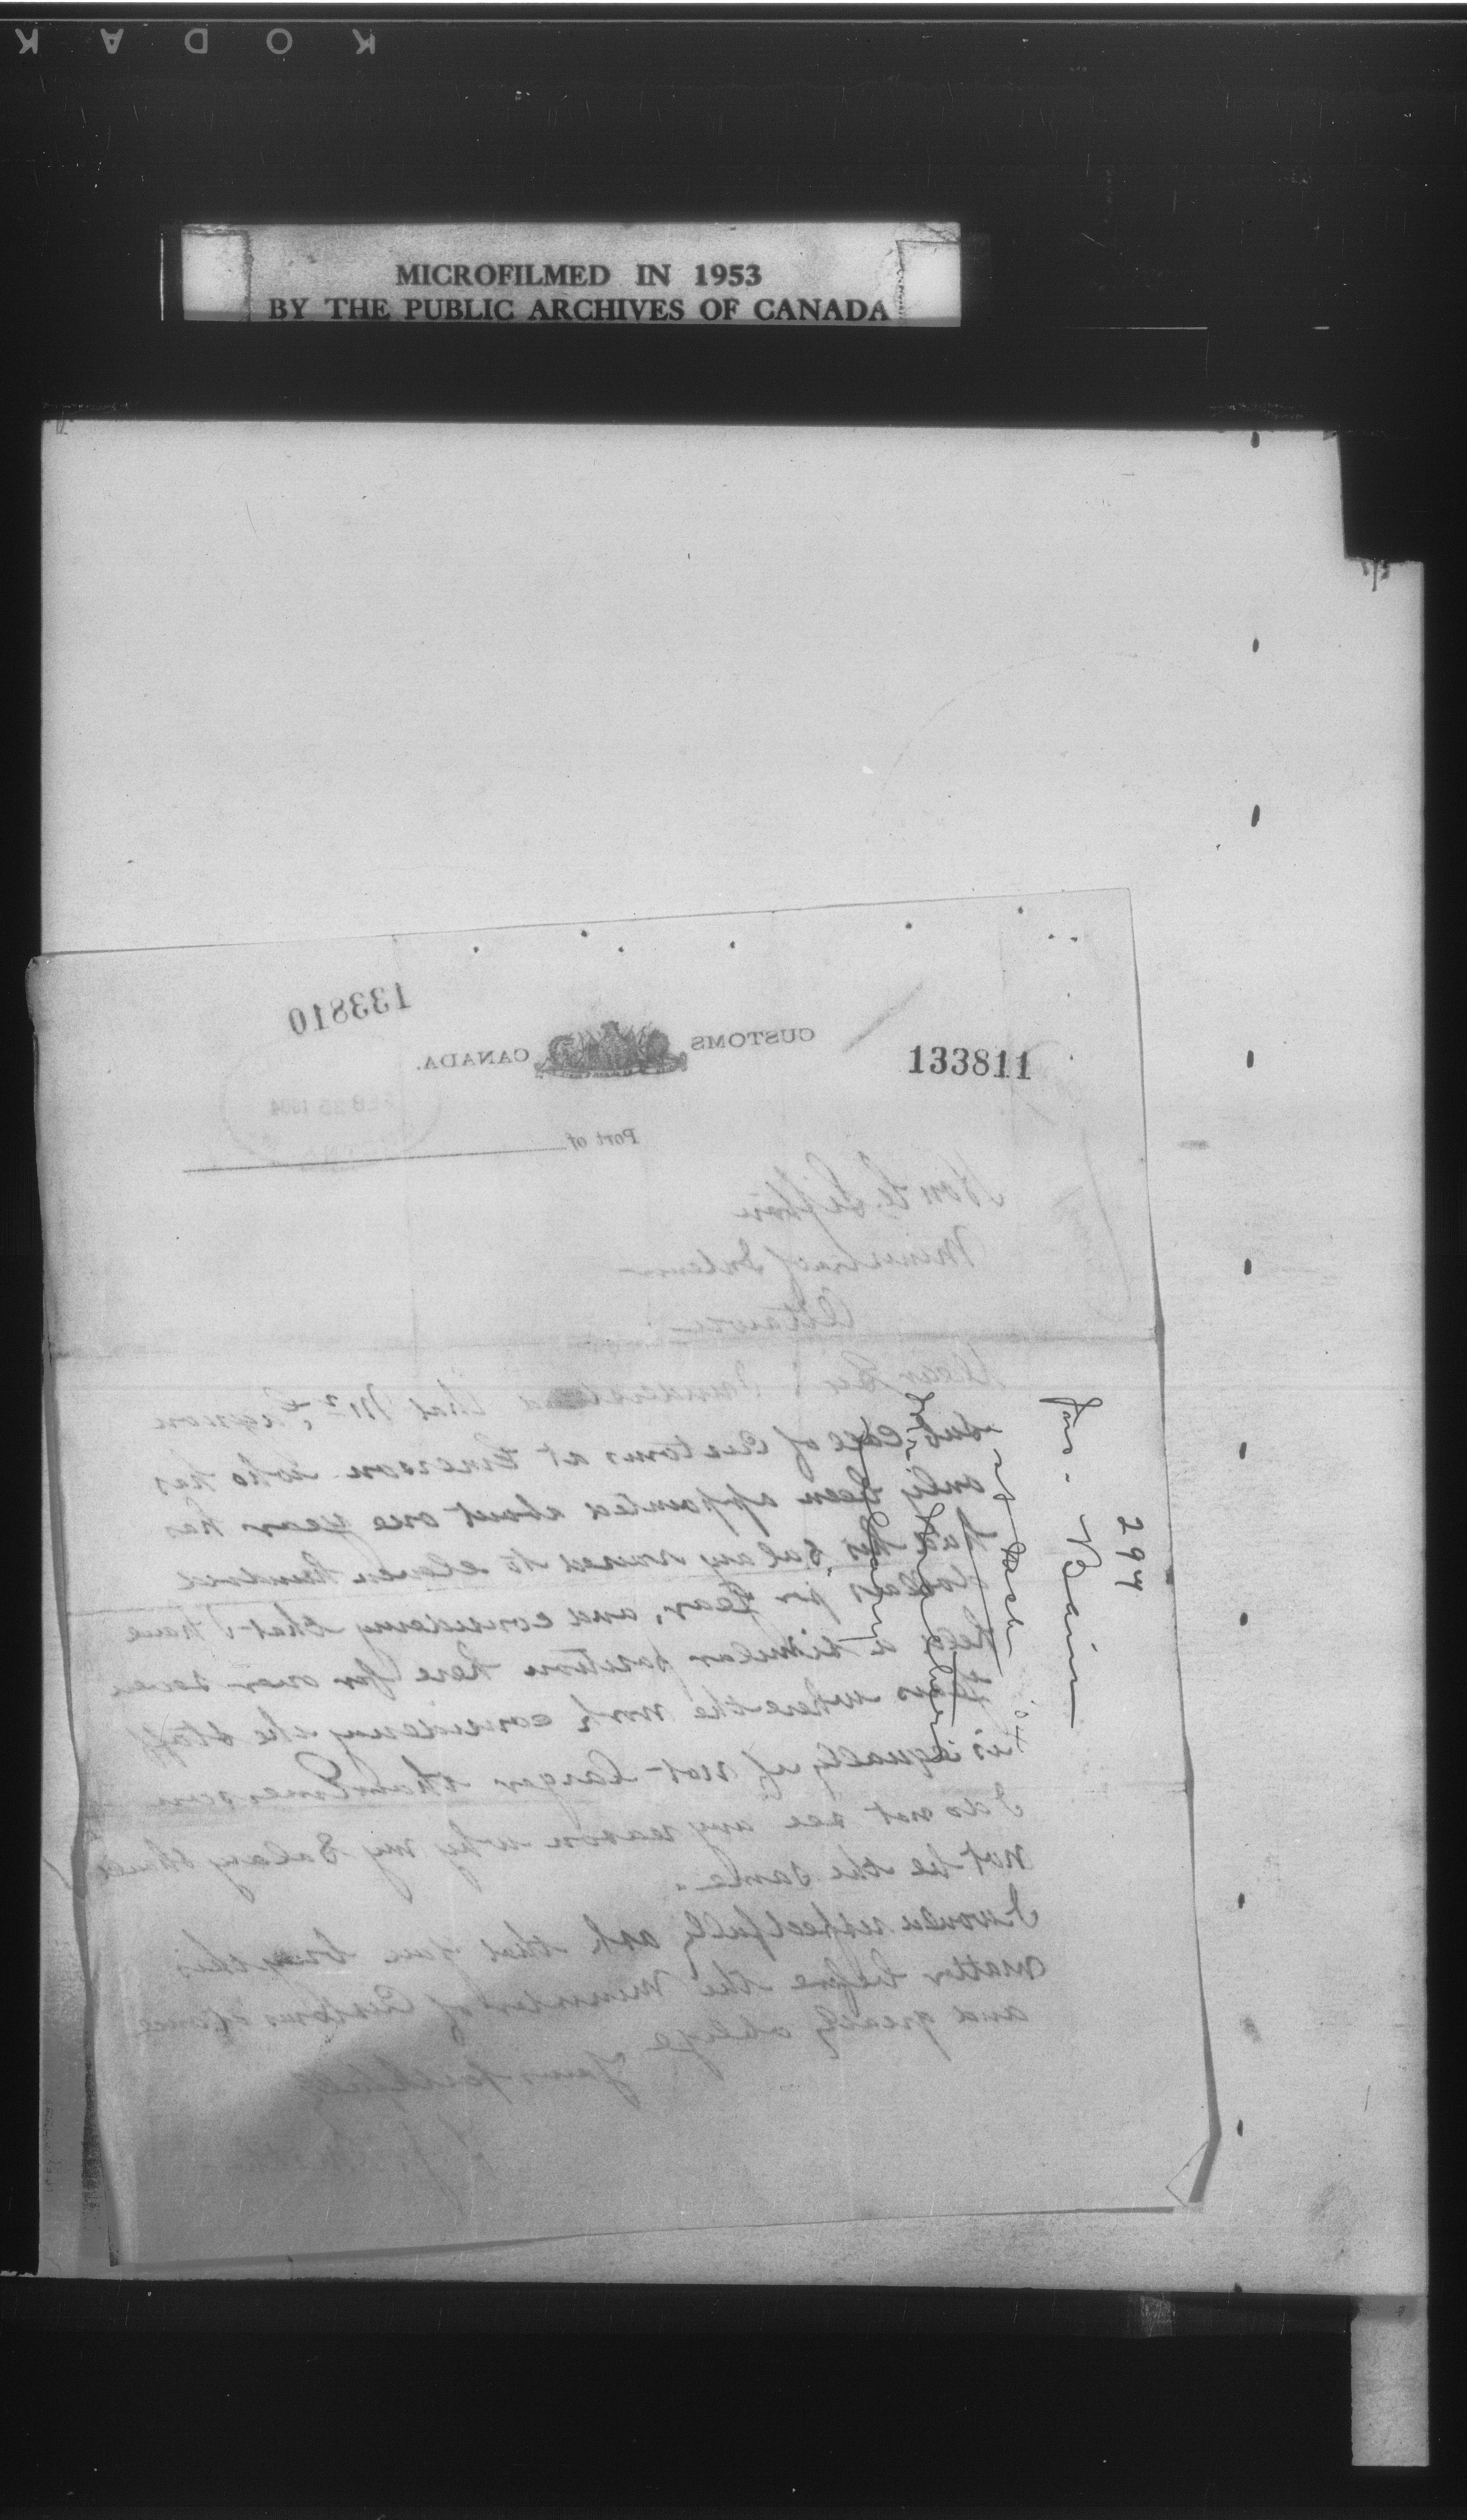 KODAK
MICROFILMED IN 1953
BY THE PUBLIC ARCHIVES OF CANADA
133810
CUSTOMS CANADA.
133811
FEB 25 1904
Port of
Hon C. Sifton
Minister of Interior
Ottawa
Dear Sir I understand that Mr.
Sub Coll of Customs at Emerson who has
only been appointed about one year has
had his Salary raised to eleven hundred
dollars pr year, and considering that I have
held a similar position here for over seven
years where the work considering the Staff
is equally if not larger than Emerson
I do not see any reason why my Salary should
not be the same.
I would respectfully ask that you bring this
matter before the Minister of Customs
and greatly oblige
Yours faithfully
294
Jas. Bain